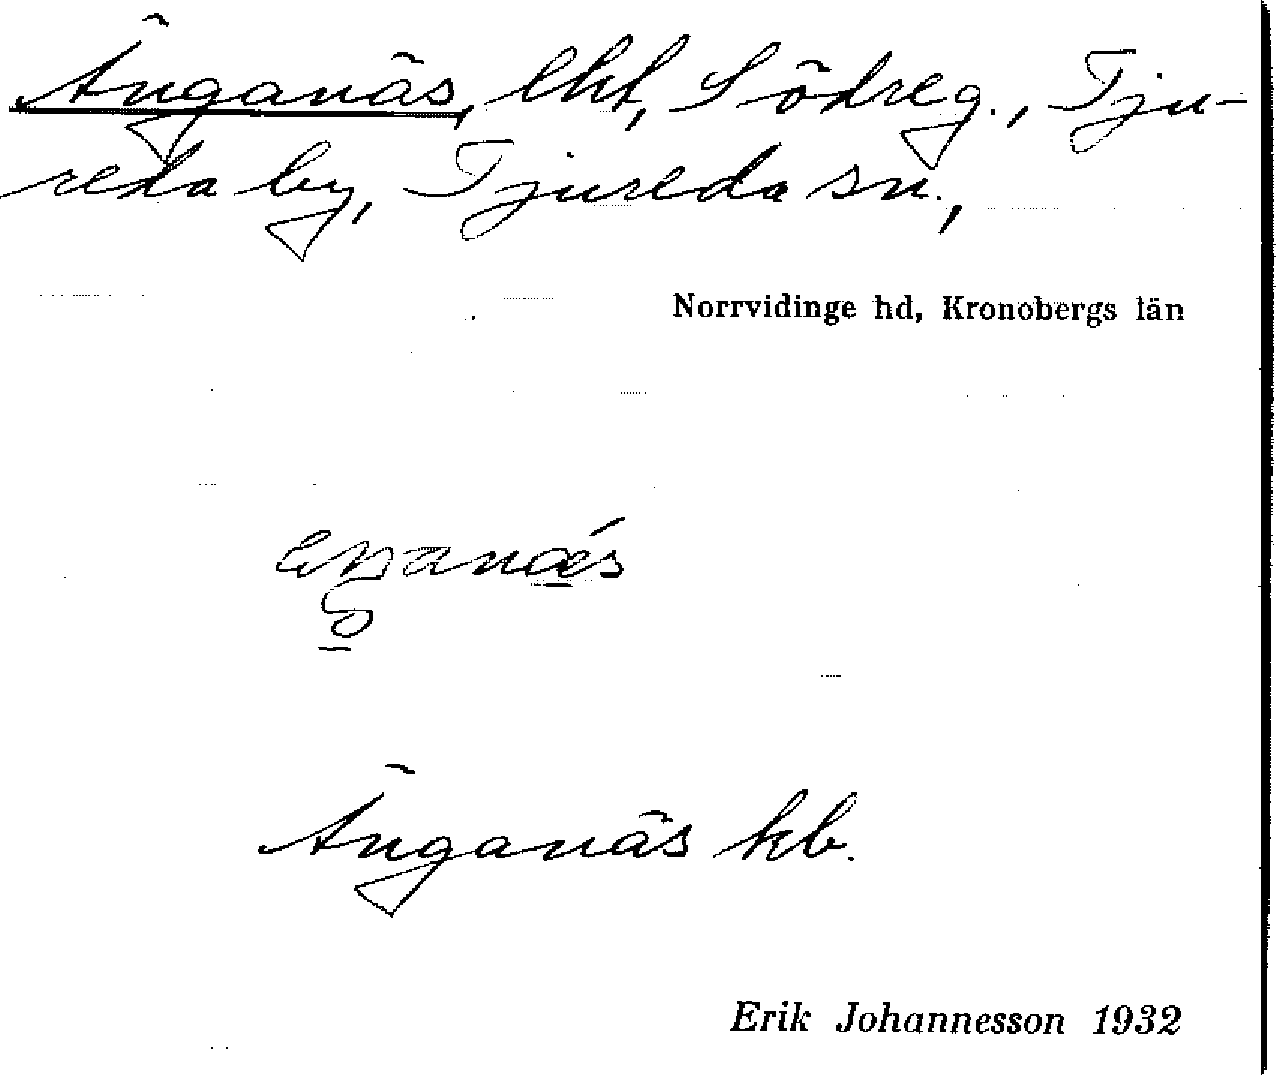 Änganäs, lht, Södreg., Tju-
reda by, Tjureda sn.,
Norrvidinge hd, Kronobergs län
Änganäs kb.
Erik Johannesson 1932